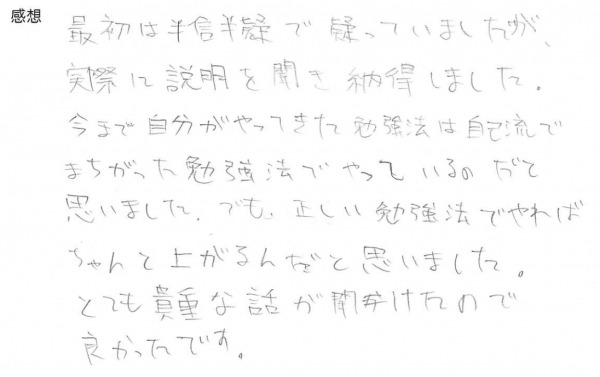 感想
最初は半信半疑で疑っていましたが、
実際に説明を聞き納得しました。
今まで自分がやってきた勉強法は自己流で
まちがった勉強法でやっているのだと
思いました。でも、正しい勉強法でやれば
ちゃんと上がるんだと思いました。
とても貴重な話が聞けたので
良かったです。